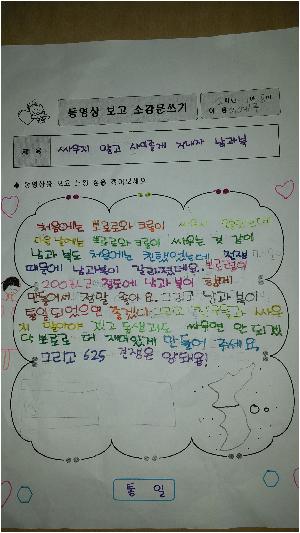 동영상 보고 소감문쓰기
제목
싸우지 말고 사이좋게 지내자 남과북
처음에는 뽀로로와 크롱이 싸우지
다음날에는 뽀로로와 크롱이 싸우는 것 같이
남과 북도 처음에는 친했었는데 전쟁
때문에 남과북이 갈라졌데요. 뽀로로가
2003년 정도에 남과 북이 함께
만들어서 정말 좋아요. 그리고 남과 북이
통일되었으면 좋겠다. 그리고 친구들과 싸우
지 말아야 겠고 동생과도 싸우면 안 되겠
다 뽀로로 더 재미있게 만들어 주세요.
그리고 625 전쟁은 안돼요!
통 일